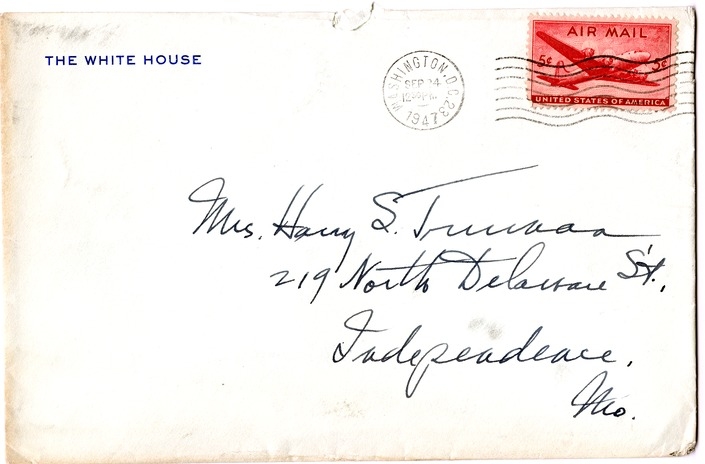 THE WHITE HOUSE
WASHINGTON, D.C.
SEP 24
1947
AIR MAIL
5¢ 5¢
UNITED STATES OF AMERICA
Mrs. Harry S. Truman
219 North Delaware St.,
Independence,
Mo.